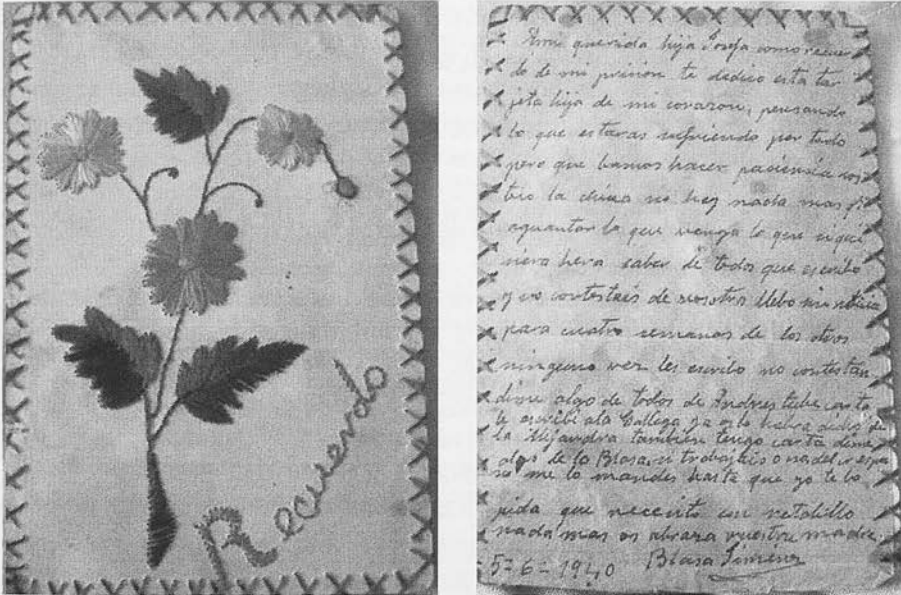 Recuerdo
Ami querida hija Josefa como recuer
do de mi prision te dedico esta tar
jeta hija de mi corazon, pensando
lo que estaras sufriendo por todo
pero que bamos hacer pasiensia
la chica no hay nada mas q
aguantar lo que venga lo que si qui
siera hera saber de todos que escribo
y no contestais de vosotros llebo sin noticia
para cuatro semanas de los otros
ninguno vez les escribo no contestan
dime algo de todos de Andres tube carta
le escribi ala Gallega ya os lo habra dicho de
la Alejandra tambien tengo carta dime
algo de la Blasa, si trabajais o no del
no me lo mandes hasta que yo te lo
pida que necesito un retalillo
nada mas os abraza vuestra madre,
5-6-1940 Blasa Jiménez